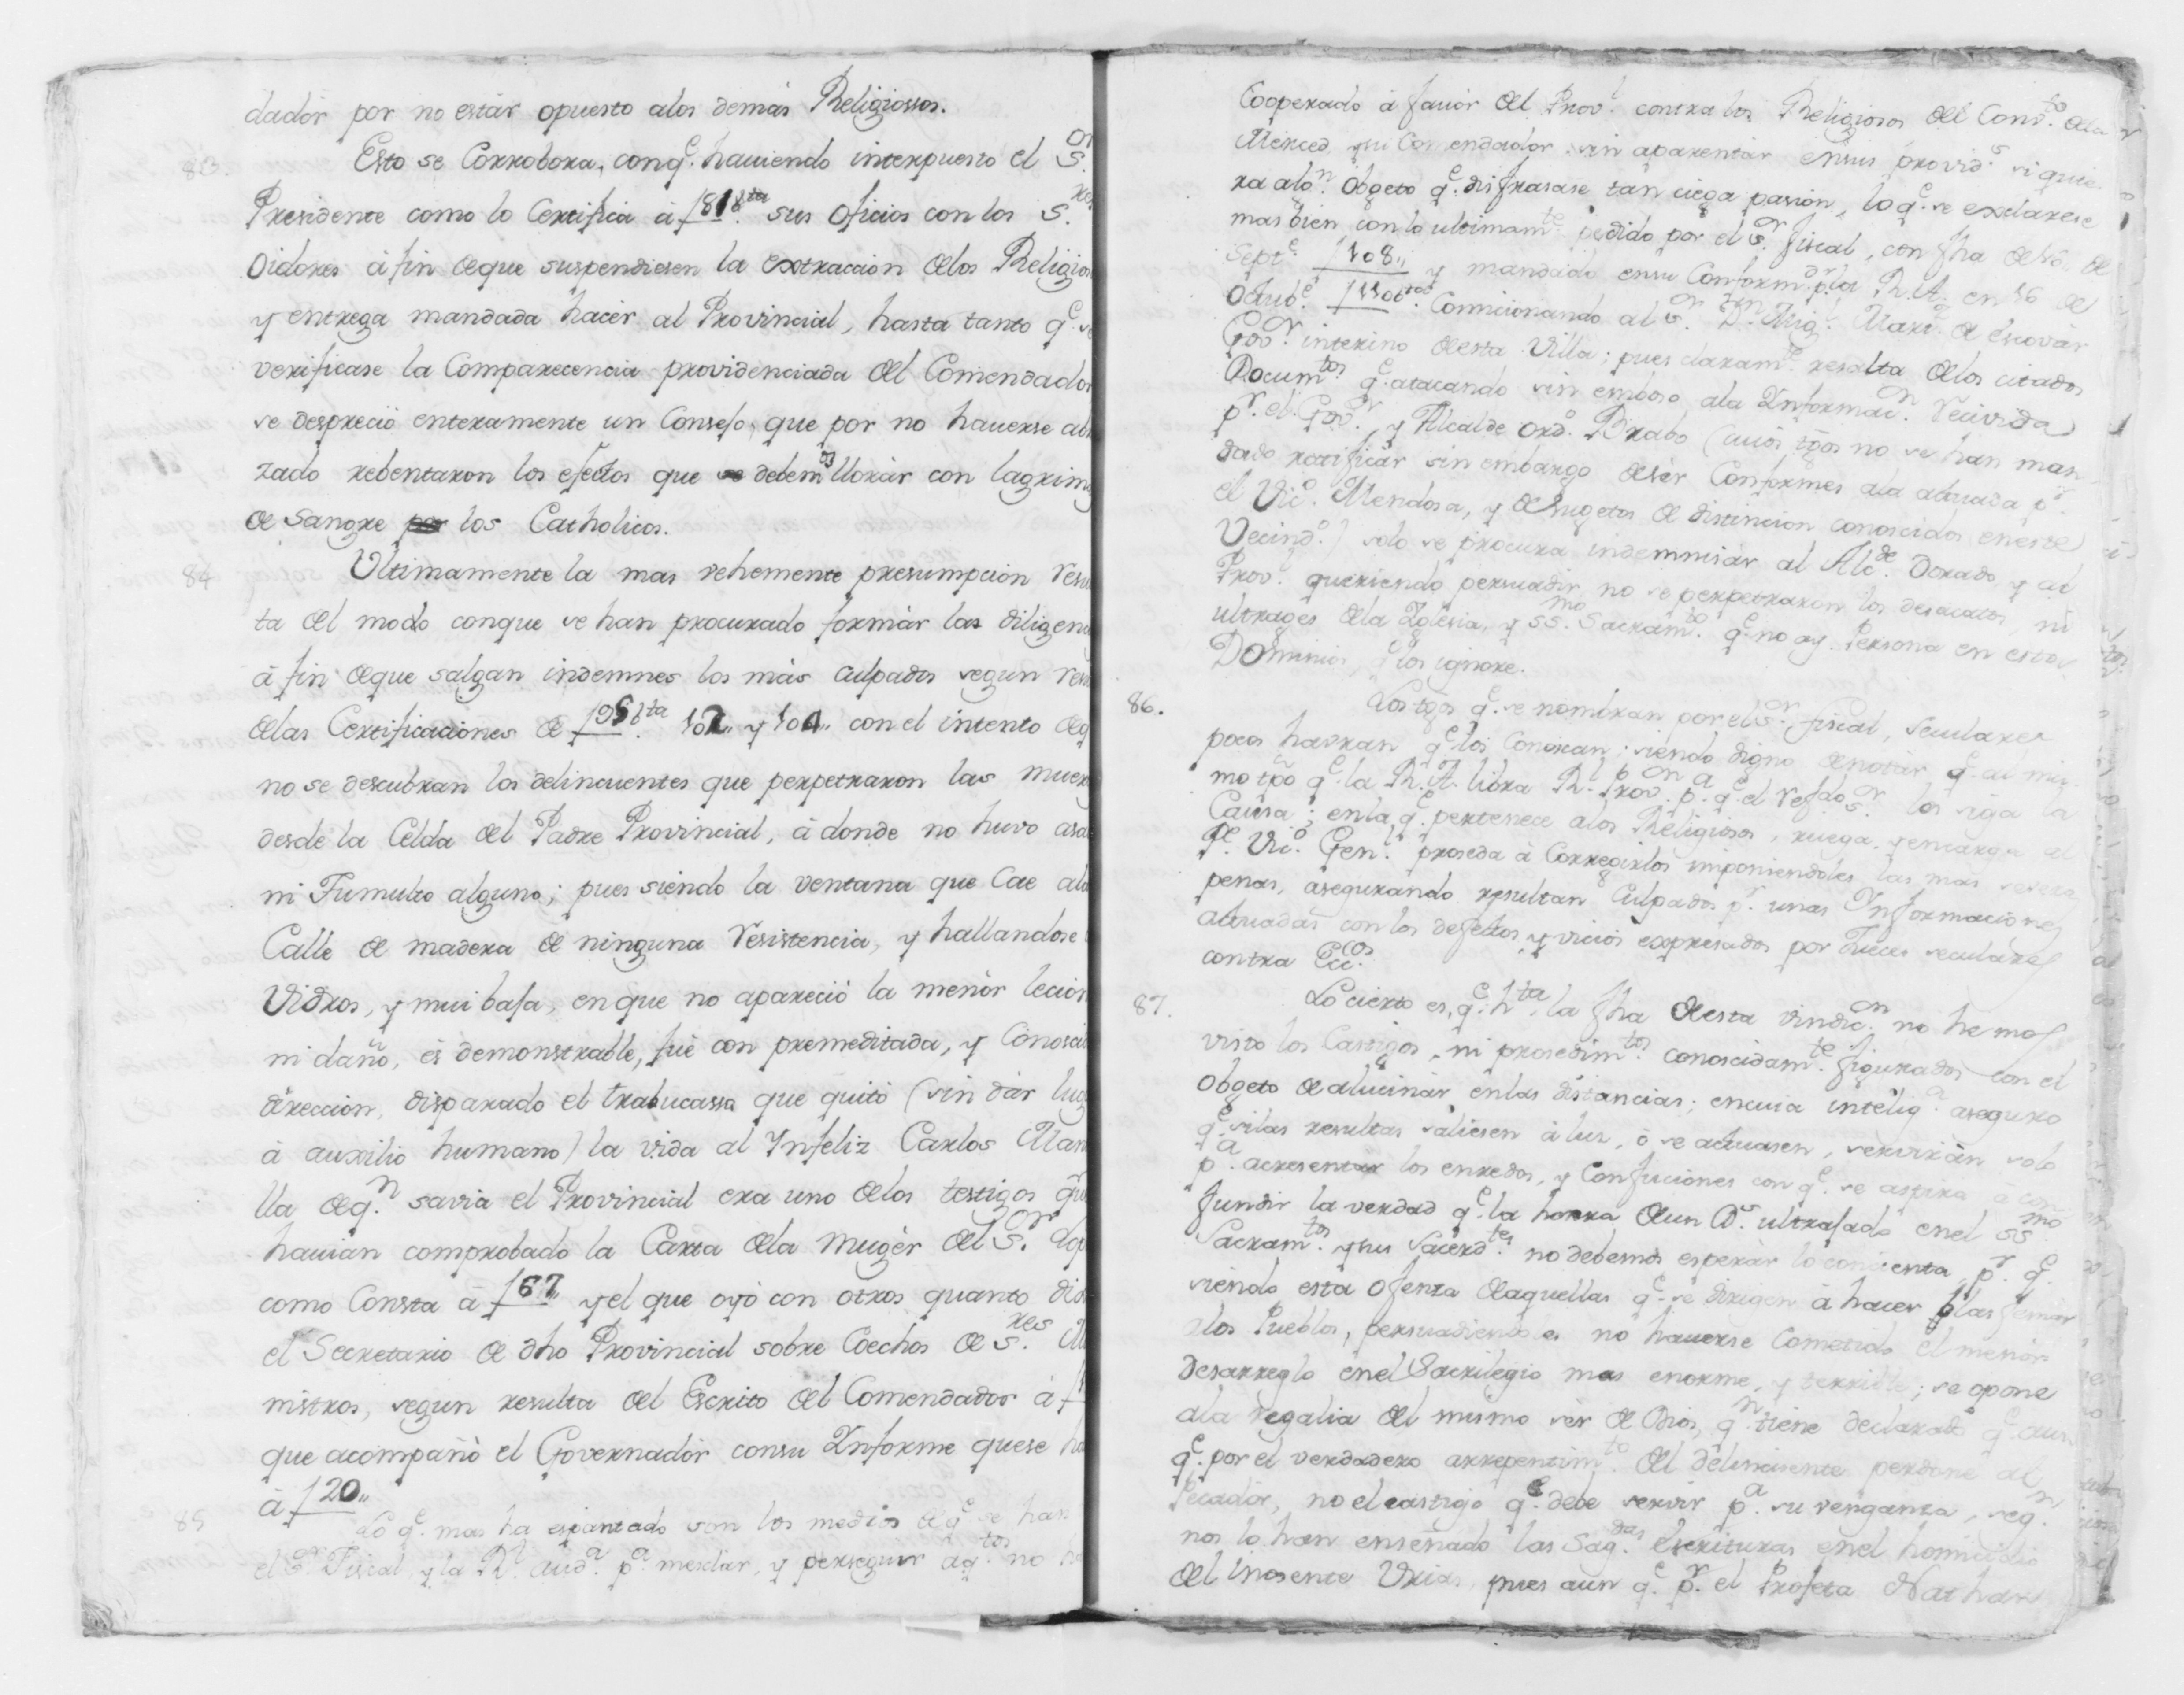 dador por no estàr opuesto alos demàs Religiossos.
83. Esto se Corrobora, conq.e haviendo interpuesto el S.or
Presidente como lo Certifica à f 81 bta sus oficios con los S.res
Oidores à fin deque suspendiesen la extraccion delos Religio
y entrega mandada hacèr al Provincial, hasta tanto q.e se
verificase la Comparecencia providenciada del Comendador
se despreciò enteramente un Consejo, que por no haverse abr
zado rebentaron los efectos que debemos lloràr con lagrim
de sangre los Catholicos.
84 Ultimamente la mas vehemente presumpcion resu
ta del modo conque se han procurado formàr las diligenc
à fin deque salgan indemnes los màs culpados segun res
delas Certificaciones de f 95 bta 102,, y 104,, con el intento deq
no se descubran los delincuentes que perpetraron las muer
desde la Celda del Padre Provincial, à donde no huvo asa
ni Tumulto alguno; pues siendo la ventana que Cae ala
Calle de madera de ninguna resistencia, y hallandose
Vidros, y mui baja, en que no apareciò la menòr lecion
ni daño, ès demonstrable, fuè con premeditada, y Conosci
direccion, disparado el trabucasso que quitò (sin dàr lug
à auxilio humano) la vida al Infeliz Carlos Man
lla deq.n savia el Provincial era uno delos testigos que
havian comprobado la Carta dela mugèr del S.or
como Consta à f 67,, y el que oyò con otros quanto dix
el Secretario de dho Provincial sobre Coechos de S.res M
nistros, segun resulta del Escrito del Comendador à f
que acompañò el Governadòr consu Informe quese ha
à f 20,,
85 Lo q.e mas ha espantado son los medios deq.e se han
el S.or Fiscal, y la R.l Aud.a p.a mesclar, y perseguir aq.tos no
Cooperado à favòr del Prov.l contra los Religiosos del Conv.to dela
Merced, y su Comendador sin aparentàr ensus provid.s siquie
ra alg.n obgeto q.e disfrasase tan ciega pasion, lo q.e se exclarese
mas bien con lo ultimam.te pedido por el S.or fiscal, con fha de de
Sept.e f 108,, y mandado ensu Conform.d p.r la R. A. en 16 de
Octub.e f 110 bta Comicionando al S.or D.n Mig.l Mart.z de Escovàr
Gov.r interino desta Villa; pues claram.te resulta delos citados
Docum.tos q.e atacando sin emboso ala Informac.n Recivida
p.r el Gov.r y Alcalde ord.o Brabo (cuios tgos no se han man
dado ratificàr sin embargo desèr Conformes ala actuada p.r
el Vic.o Mendosa, y desugetos de distincion conoscidos eneste
Vecind.o) solo se procura indemnisàr al Alc.de Dorado, y al
Prov.l queriendo persuadir no se perpetraron los desacatos, ni
ultrages dela Iglesia, y SS.mo Sacram.to q.e no ay Persona en estos
Dominios q.e los ignore.
86. Los tgos q.e se nombran por el S.or fiscal, Seculares
pocos havran q.e los Conoscan: siendo digno denotàr q.e al mis
mo tpo q.e la R. A. libra R.l Prov.on p.a q.e el refdo S.or los siga la
Causa; en la q.e pertenece alos Religiosos, ruega, y encarga al
P.e Vic.o Gen.l proseda à Corregirlos imponiendoles las mas severas
penas, asegurando resultan Culpados p.r unas Informaciones
actuadas con los defectos, y vicios expresados por Jueces seculares
contra Ecc.cos
87. Lo cierto es, q.e hta la fha desta vindic.on no hemos
visto los Castigos, ni prosedim.tos conoscidam.te figurados con el
obgeto dealucinàr enlas distancias; encuia intelig.a aseguro
q.e silas resultas saliesen à luz, ò se actuasen, servirian solo
p.a acresentar los enredos, y Confuciones con q.e se aspira à con
fundir la verdad q.e la honra deun D.s ultrajado enel SS.mo
Sacram.to y sus Sacerd.tes no debemos esperàr lo concienta, p.r q.e
siendo esta ofenza deaquellas q.e se dirigen à hacer blasfemar
alos Pueblos, persuadiendoles no haverse Cometido el menòr
Desarreglo enel Sacrilegio mas enorme, y terrible; se opone
ala regalia del mismo sèr de Dios, q.n tiene declarado q.e aun
q.e por el verdadero arrepentim.to del delincuente perdone al
Pecadòr, no el castigo q.e debe servir p.a su venganza, seg.n
nos lo han enseñado las Sag.das Escrituras enel homicidio
del Inosente Urias, pues aun q.e p.r el Profeta Nathan